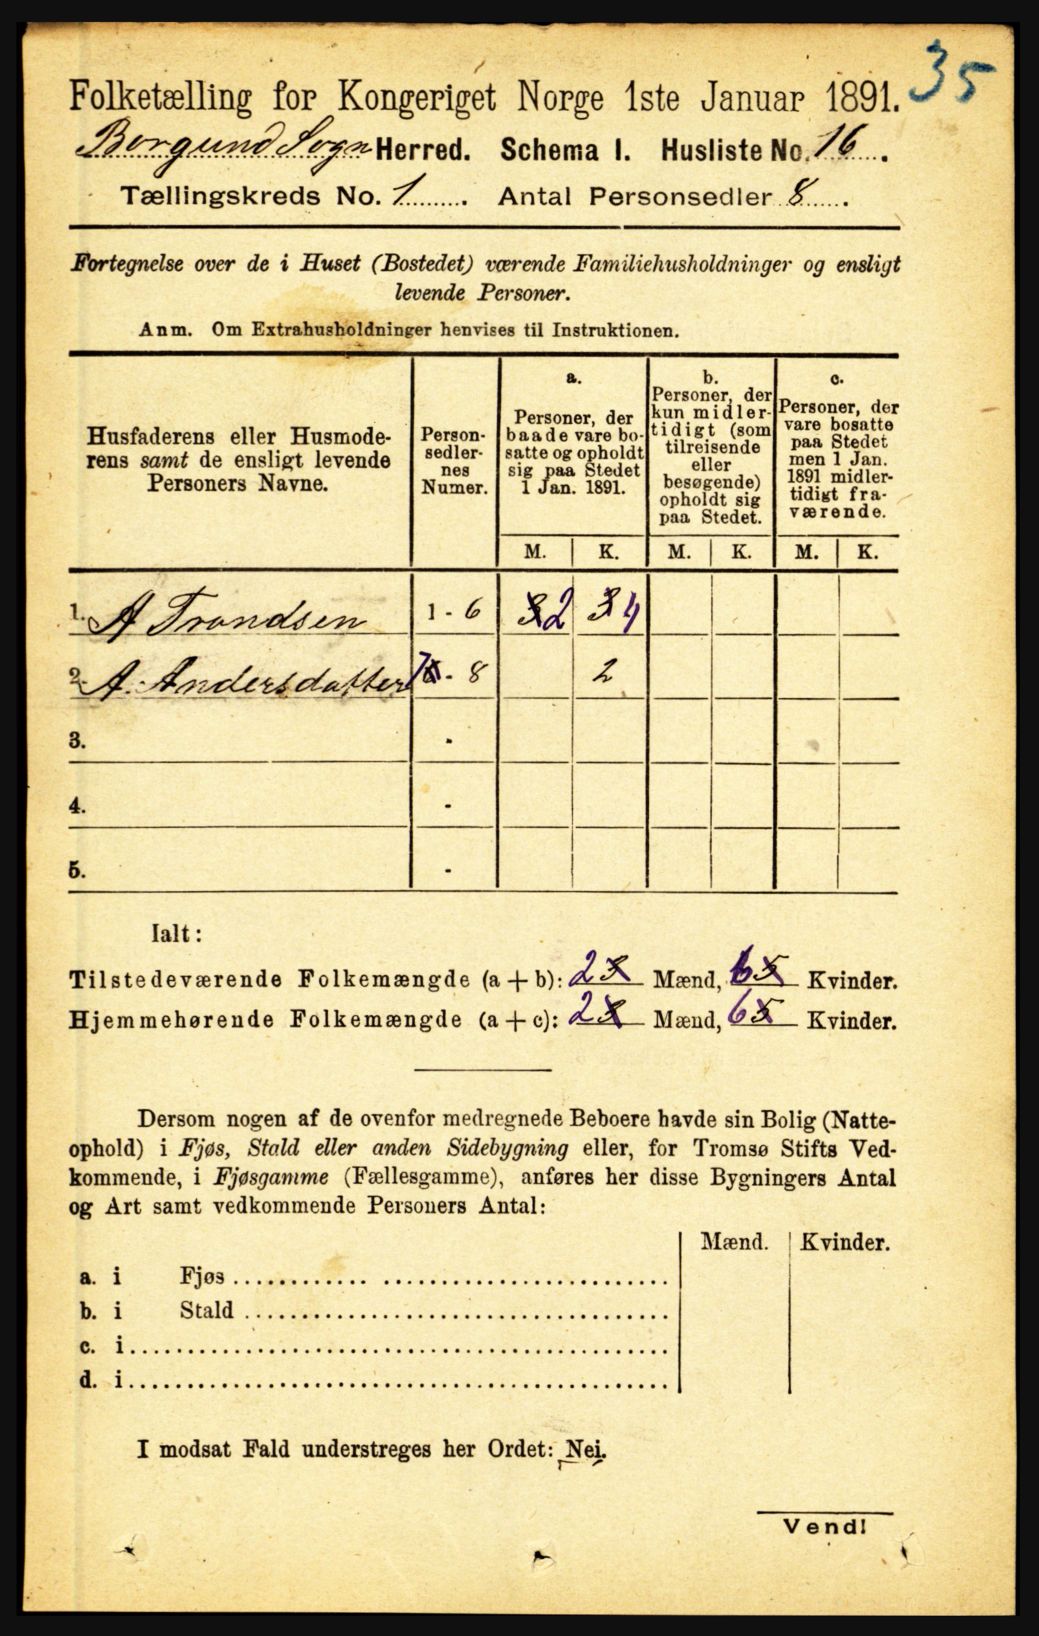 35
Folketælling for Kongeriget Norge 1ste Januar 1891.
Borgund Sogn Herred. Schema I. Husliste No. 16.
Tællingskreds No. 1. Antal Personsedler 8.
Fortegnelse over de i Huset (Bostedet) værende Familiehusholdninger og ensligt
levende Personer.
Anm. Om Extrahusholdninger henvises til Instruktionen.
Husfaderens eller Husmode-
rens samt de ensligt levende
Personers Navne.
Person-
sedler-
nes
Numer.
a.
Personer, der
baade vare bo-
satte og opholdt
sig paa Stedet
1 Jan. 1891.
b.
Personer, der
kun midler-
tidigt (som
tilreisende
eller
besøgende)
opholdt sig
paa Stedet.
c.
Personer, der
vare bosatte
paa Stedet
men 1 Jan.
1891 midler-
tidigt fra-
værende.
M. K. M. K. M. K.
1. A Trondsen 1 - 6 3 2 3 4
2. A. Andersdatter 7 6 - 8 2
3. -
4. -
5. -
Ialt:
Tilstedeværende Folkemængde (a + b): 2 3 Mænd, 6 5 Kvinder.
Hjemmehørende Folkemængde (a + c): 2 3 Mænd, 6 5 Kvinder.
Dersom nogen af de ovenfor medregnede Beboere havde sin Bolig (Natte-
ophold) i Fjøs, Stald eller anden Sidebygning eller, for Tromsø Stifts Ved-
kommende, i Fjøsgamme (Fællesgamme), anføres her disse Bygningers Antal
og Art samt vedkommende Personers Antal:
Mænd. Kvinder.
a. i Fjøs
b. i Stald
c. i
d. i
I modsat Fald understreges her Ordet: Nei.
Vend!